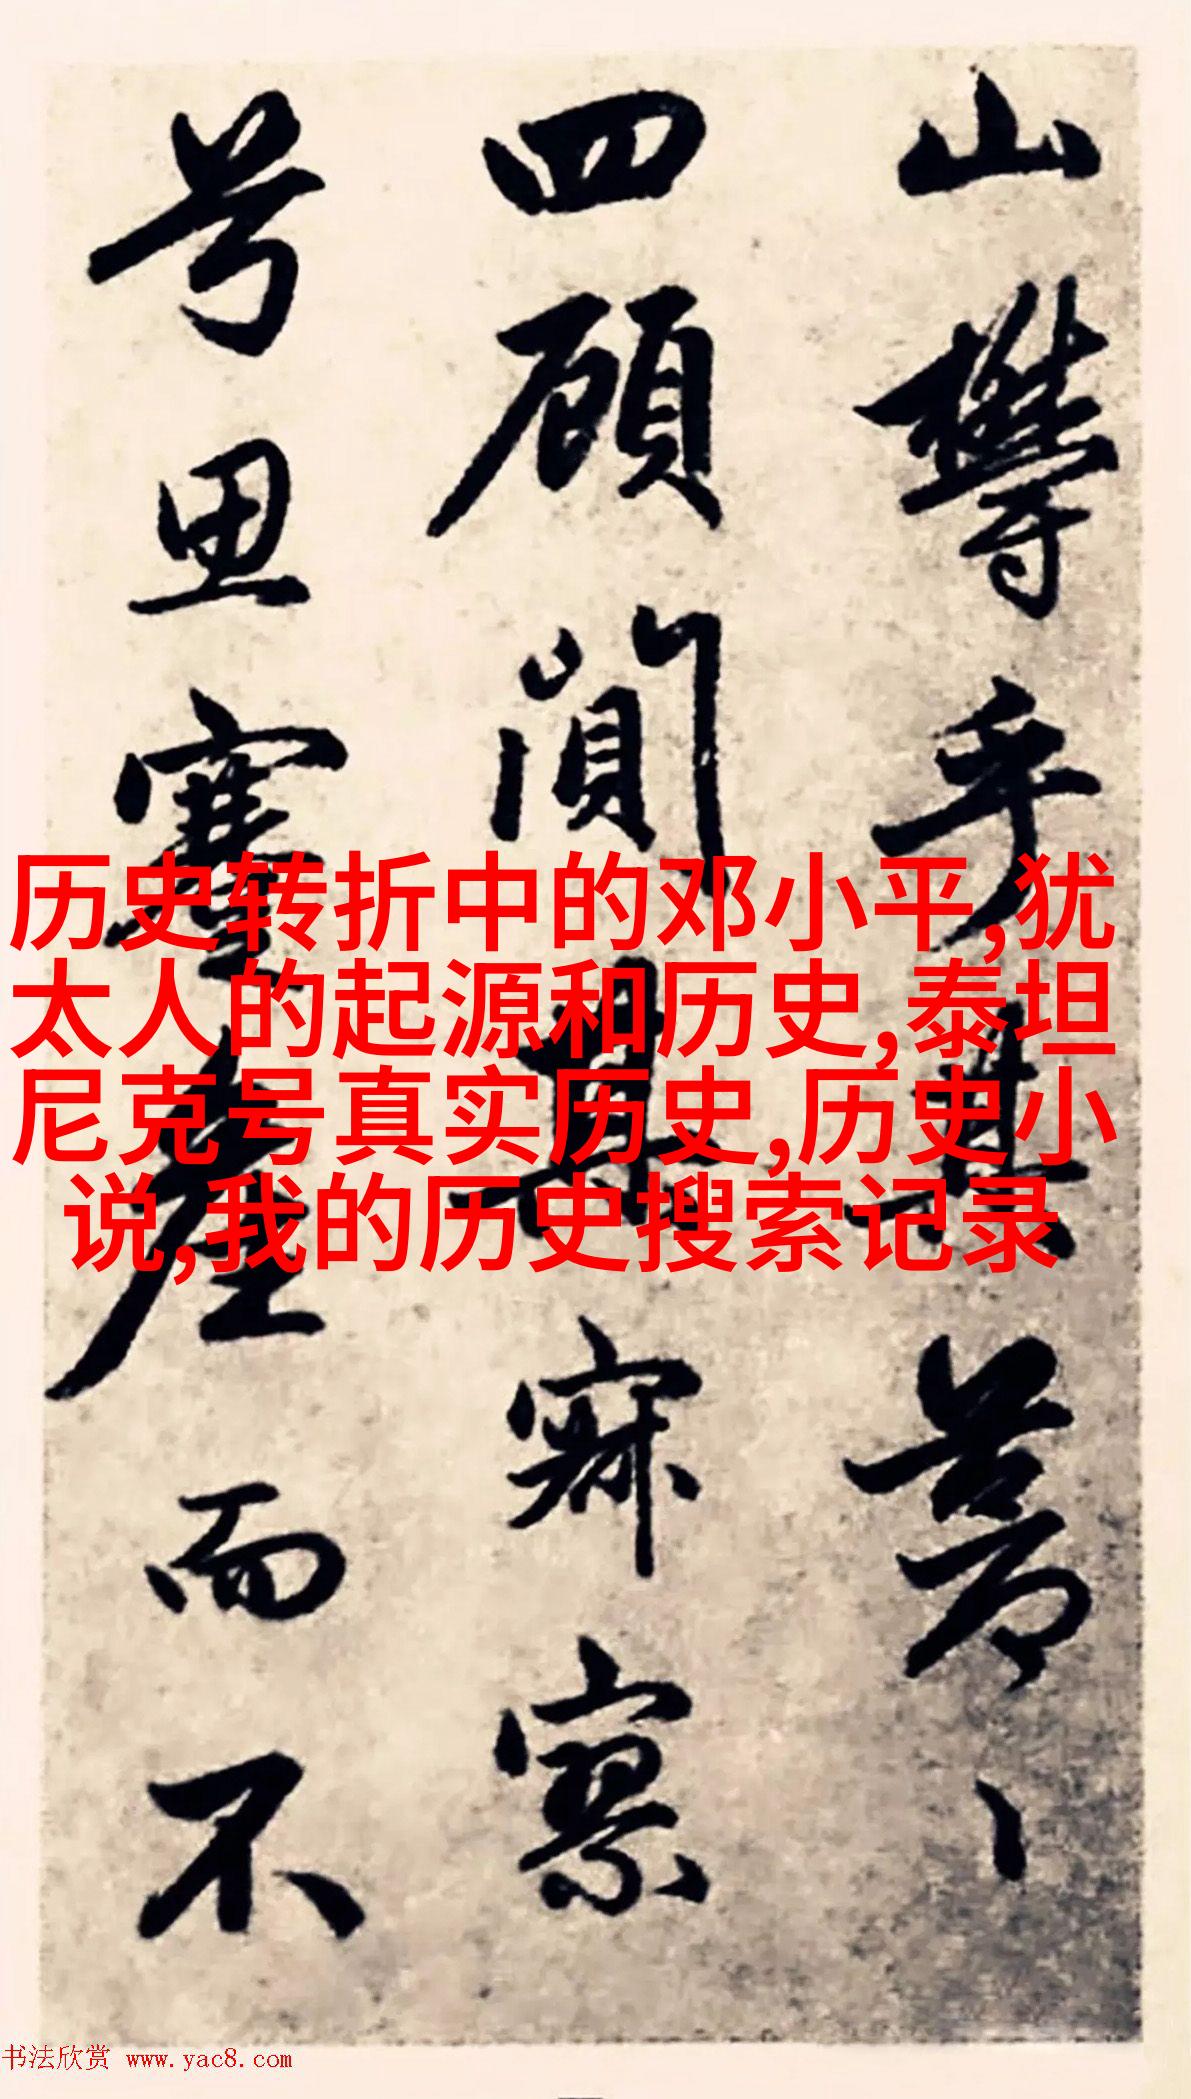 山欝乎其蒼〻
四顧闃其寂寥
兮思蹇產而不
历史转折中的邓小平,犹
太人的起源和历史,泰坦
尼克号真实历史,历史小
说,我的历史搜索记录
书法欣赏 www.yac8.com